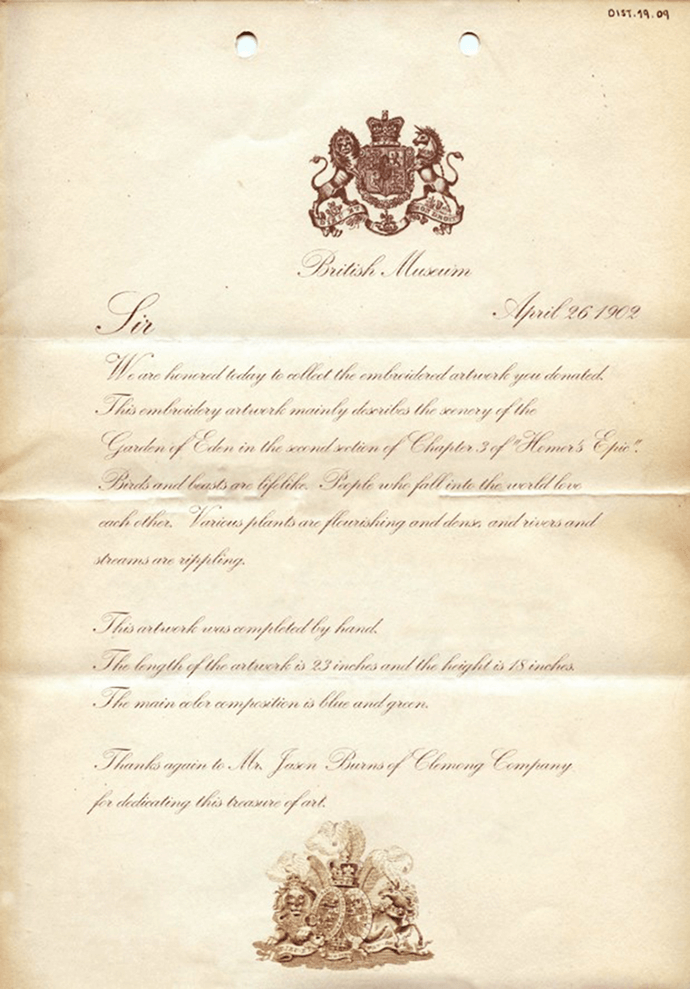 DIST. 19. 09
British Museum
April 26 1902
Sir
We are honored today to collect the embroidered artwork you donated.
This embroidery artwork mainly describes the scenery of the
Garden of Eden in the second section of Chapter 3 of "Homer's Epic".
Birds and beasts are lifelike. People who fall into the world love
each other. Various plants are flourishing and dense, and rivers and
streams are rippling.
This artwork was completed by hand.
The length of the artwork is 23 inches and the height is 18 inches.
The main color composition is blue and green.
Thanks again to Mr. Jason Burns of Clemong Company
for dedicating this treasure of art.